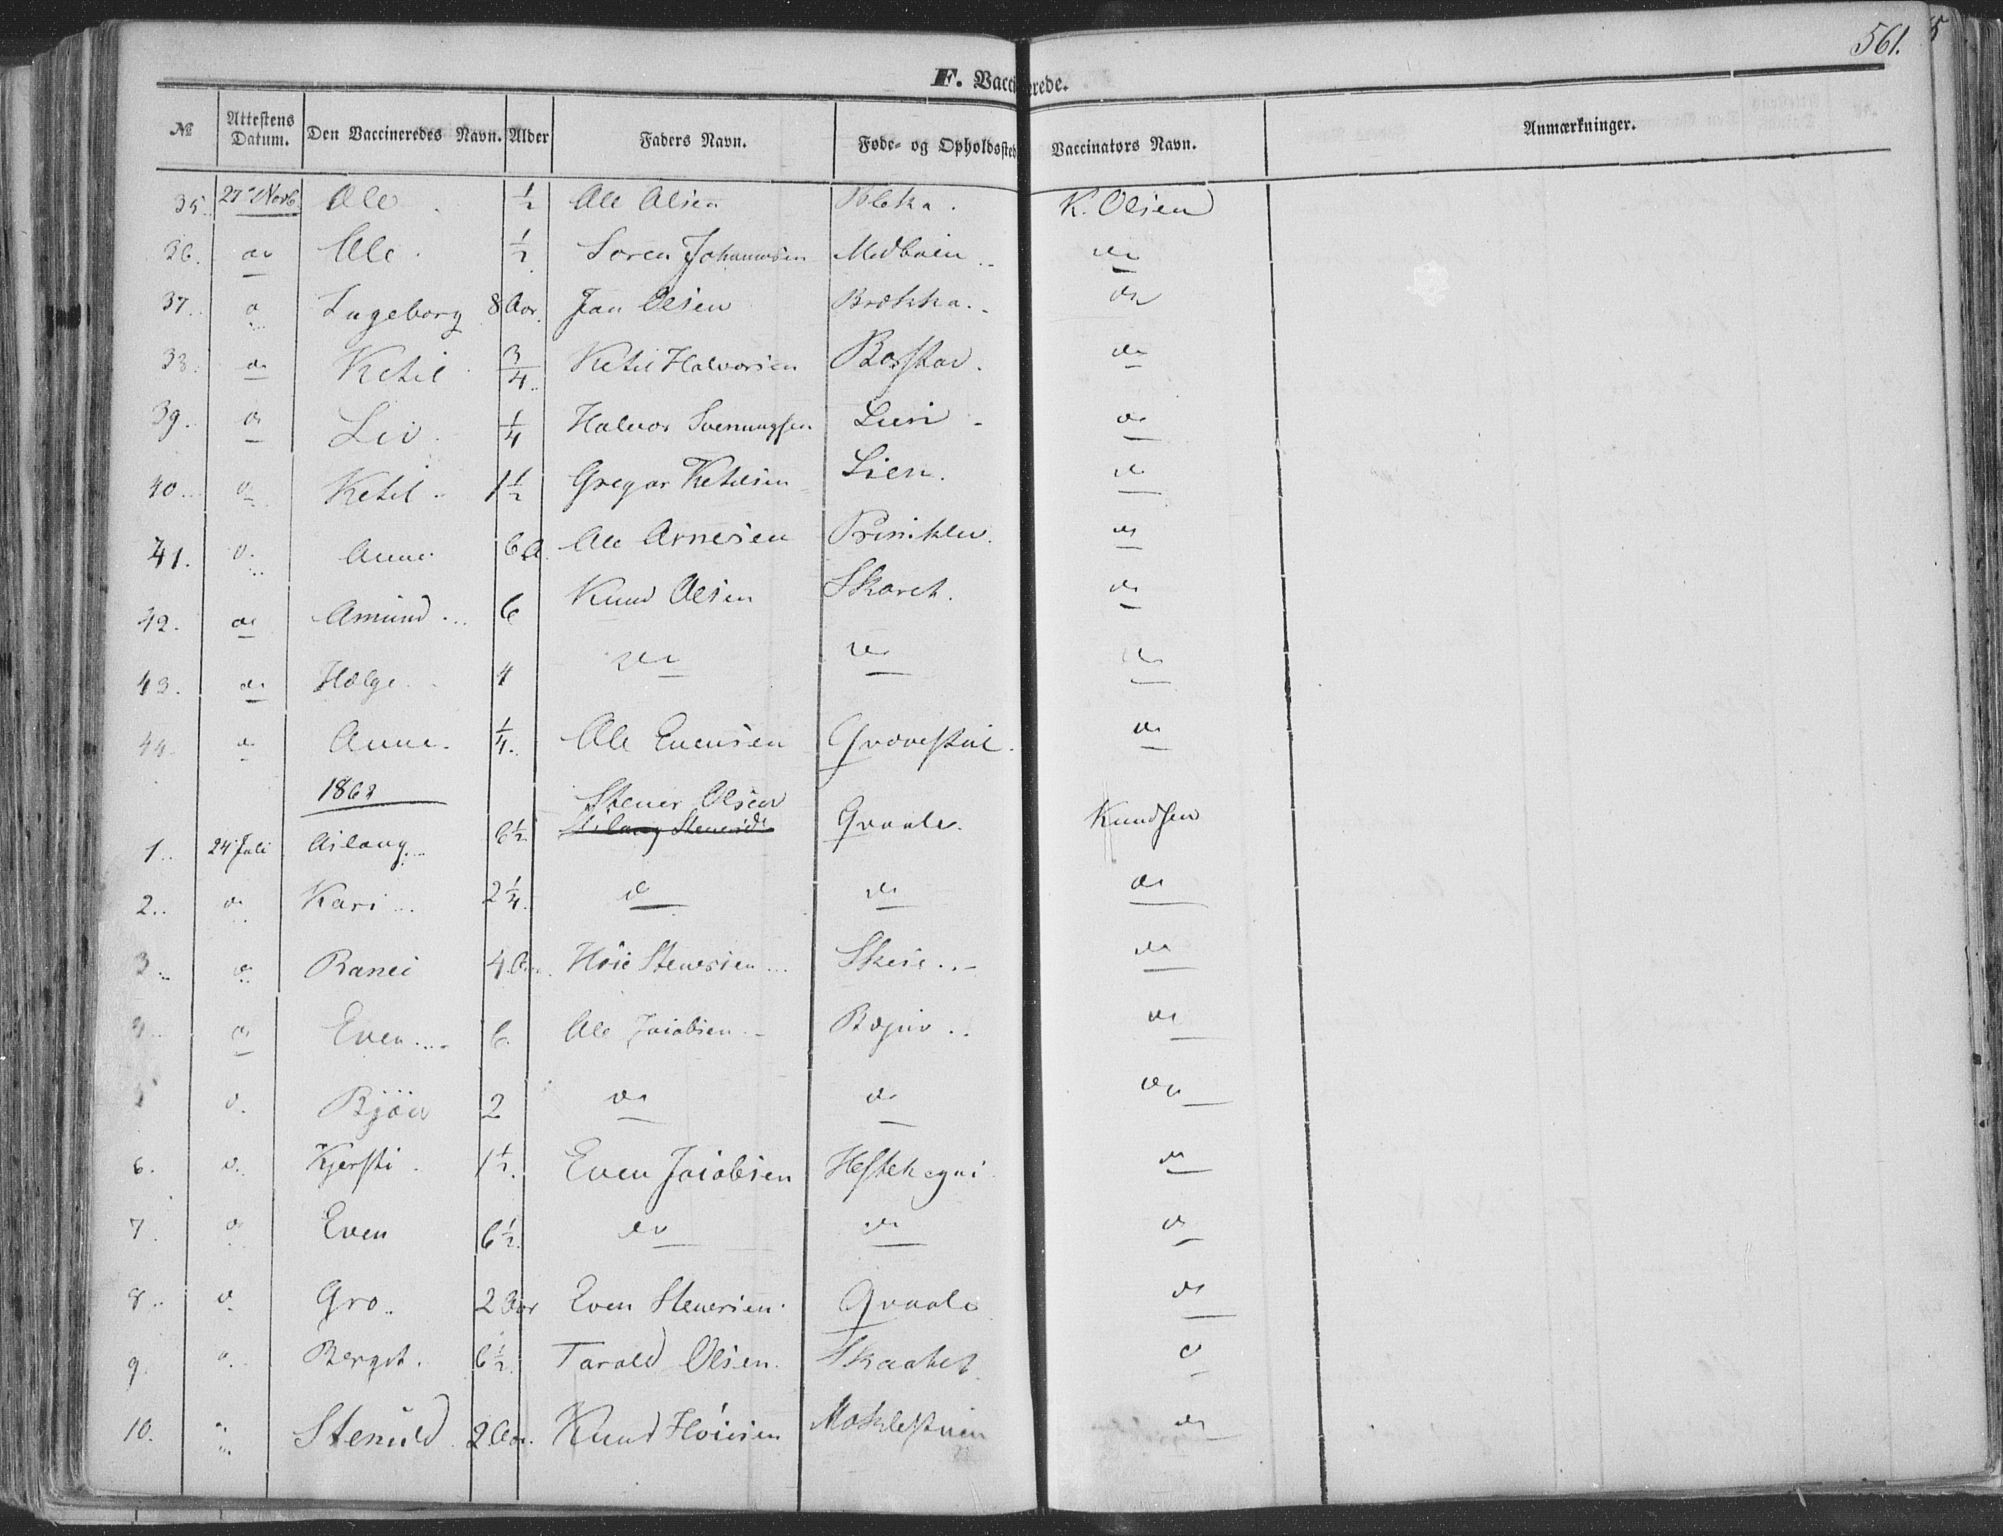 561.
F. Vaccinerede.
№ Attestens Datum. Den Vaccineredes Navn. Alder Faders Navn. Føde- og Opholdssted Vaccinators Navn. Anmærkninger.
35. 27de Novb. Ole. ½ Ole Olsen K. Olsen
36. do Ole. ½ Soren Johannesen Medboien do
37. do Ingeborg 8 Aar. Jan Olsen Brokka. do
38. do Ketil ¾ Ketil Halvorsen do
39. do Liv. ¼ Halvor Svenungsen do
40. do Ketil 1½ Gregar Ketilsen Lien. do
41. do Anne 6 A. Ole Arnesen do
42. do Amund 6 Knud Olsen Skaret. do
43. do Helge 4 do do do
44. do Anne. ¼. Ole Evensen do
1862
1. 24 Juli Aslaug 6½ Stener Olsen Qvaale. Knudsen
2. do Kari 2¼. do do do
3. do Ranei 4 Aar. Høie Stenersen Skeie do
4. do Even 6 Ole Jacobsen do
5 do Bjøn 2 do do do
6. do Kjersti. 1½. Even Jacobsen do
7. do Even 6½. do do do
8. do Gro 2 Aar Even Stenersen. Qvaale do
9. do Bergit. 6½. Tarald Olsen. do
10. Stenuld 2 Aar. Knud Høiesen do